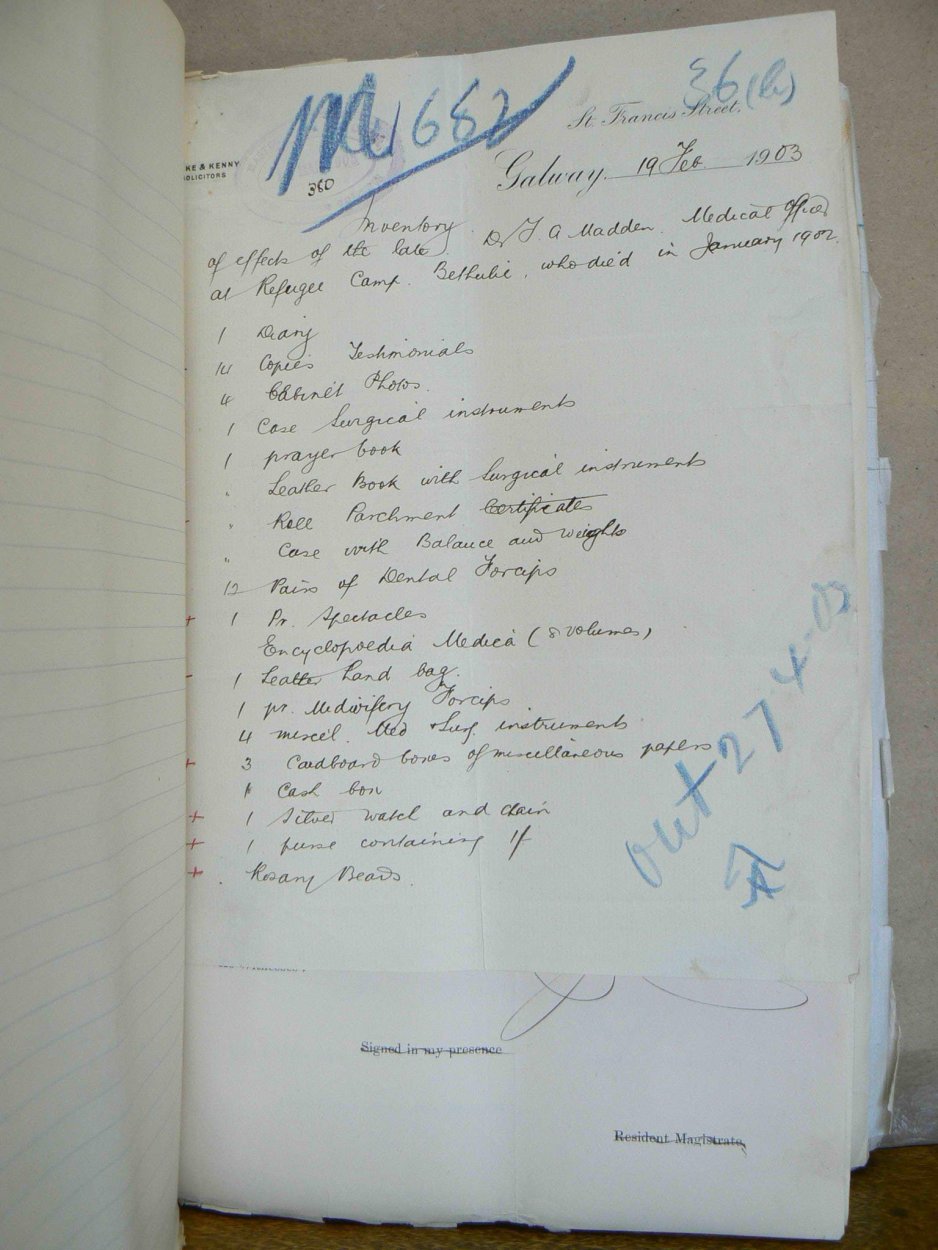 M 1682
36(b)
St. Francis Street,
KE & KENNY
OLICITORS
360
Galway, 19 Feb 1903
Inventory
of effects of the late Dr T. A Madden. Medical Officer
at Refugee Camp. Bethulie, who died in January 1902.
1 Diary
14 Copies Testimonials
4 Cabinet Photos.
1 Case Surgical instruments
1 prayer book
" Leather Book with Surgical instruments
" Roll Parchment Certificates
" Case with Balance and weights
12 Pairs of Dental Forcips
1 Pr. Spectacles
Encyclopoedia Medica (8 volumes)
1 Leather hand bag.
1 pr. Midwifery Forcips
4 miscel. Med & Surg. instruments
3 Cardboard boxes of miscellaneous papers
1 Cash box
1 Silver watch and chain
1 purse containing 1/
Rosary Beads.
out 27 4-03
Signed in my presence
Resident Magistrate,